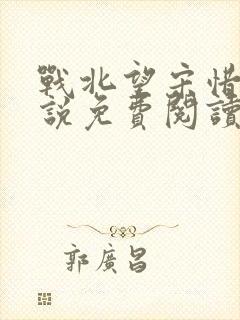 戰北望宋惜
說免費閱讀
郭廣昌